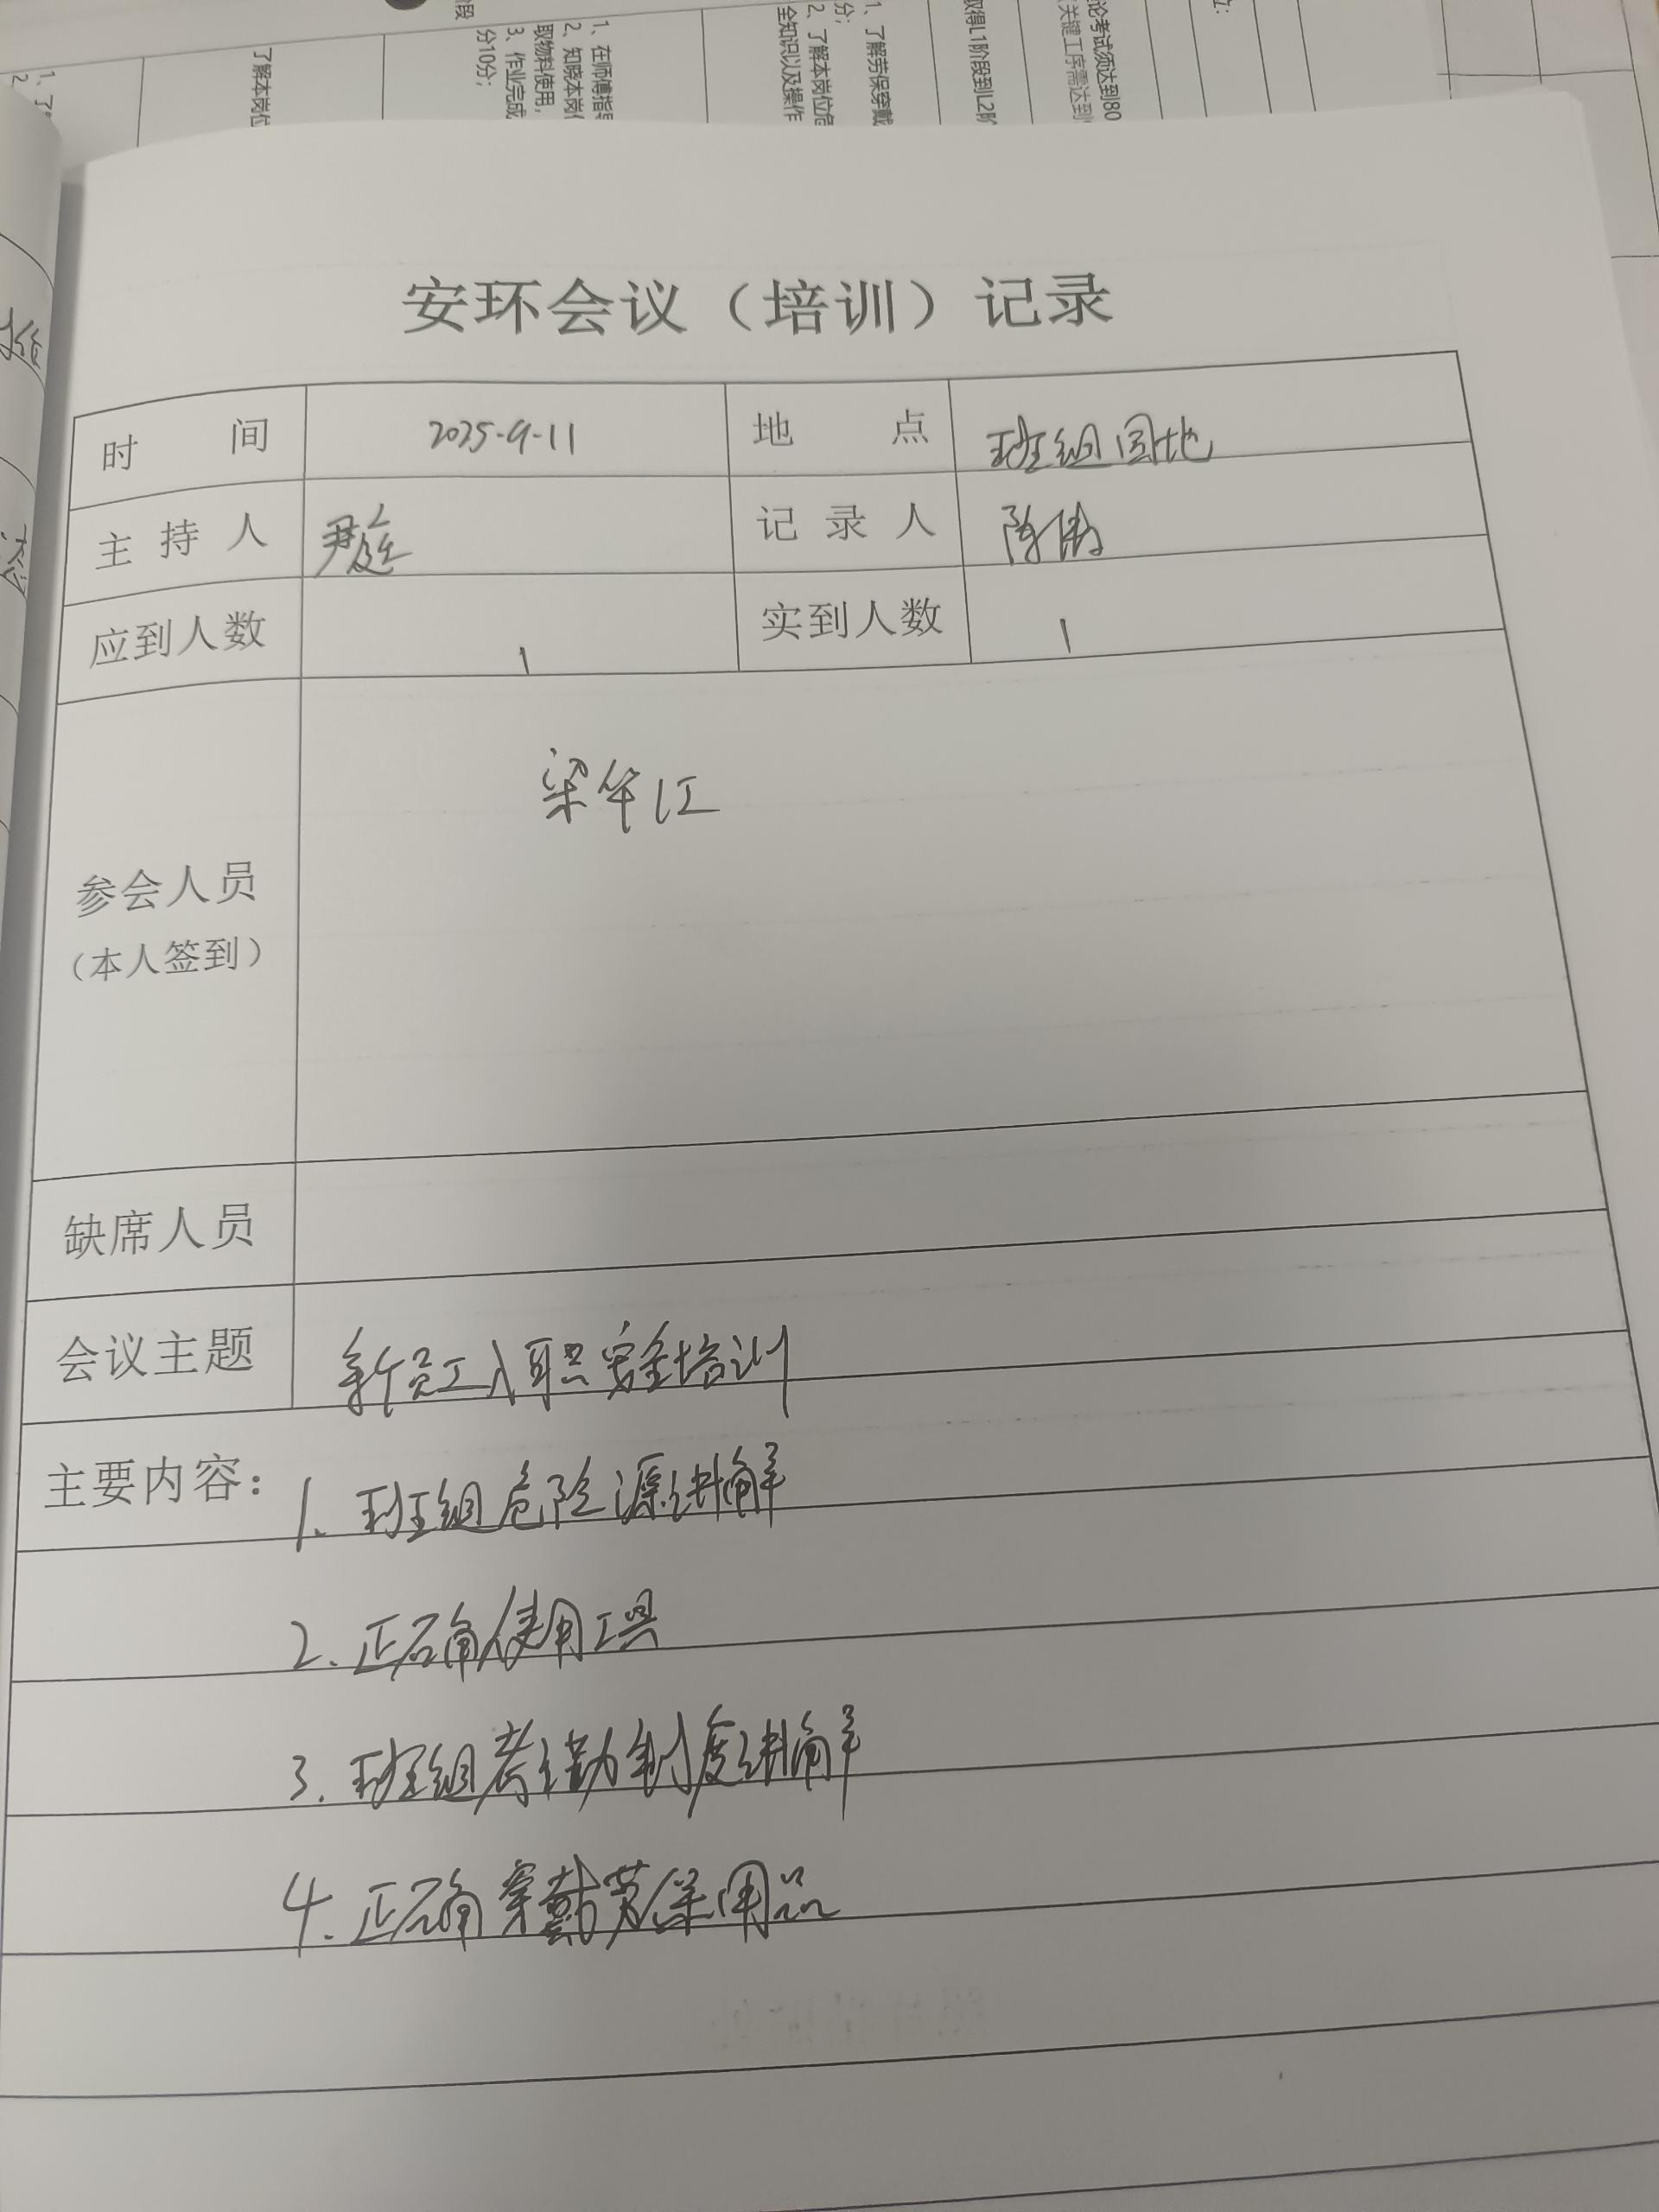 段
了解本岗位
1、在师傅指导
2、知晓本岗位
取物料使用,
3、作业完成
分10分;
1、了解劳保穿戴
分;
2、了解本岗位危
全知识以及操作
取得L1阶段到L2阶
论考试须达到80
关键工序需达到
安环会议（培训）记录
时 间 2025-9-11 地 点 班组园地
主 持 人 尹庭 记 录 人 陈
应到人数 1 实到人数 1
梁华江
参会人员
（本人签到）
缺席人员
会议主题 新员工入职安全培训
主要内容： 1. 班组危险源讲解
2. 正确使用工具
3. 班组考勤制度讲解
4. 正确穿戴劳保用品